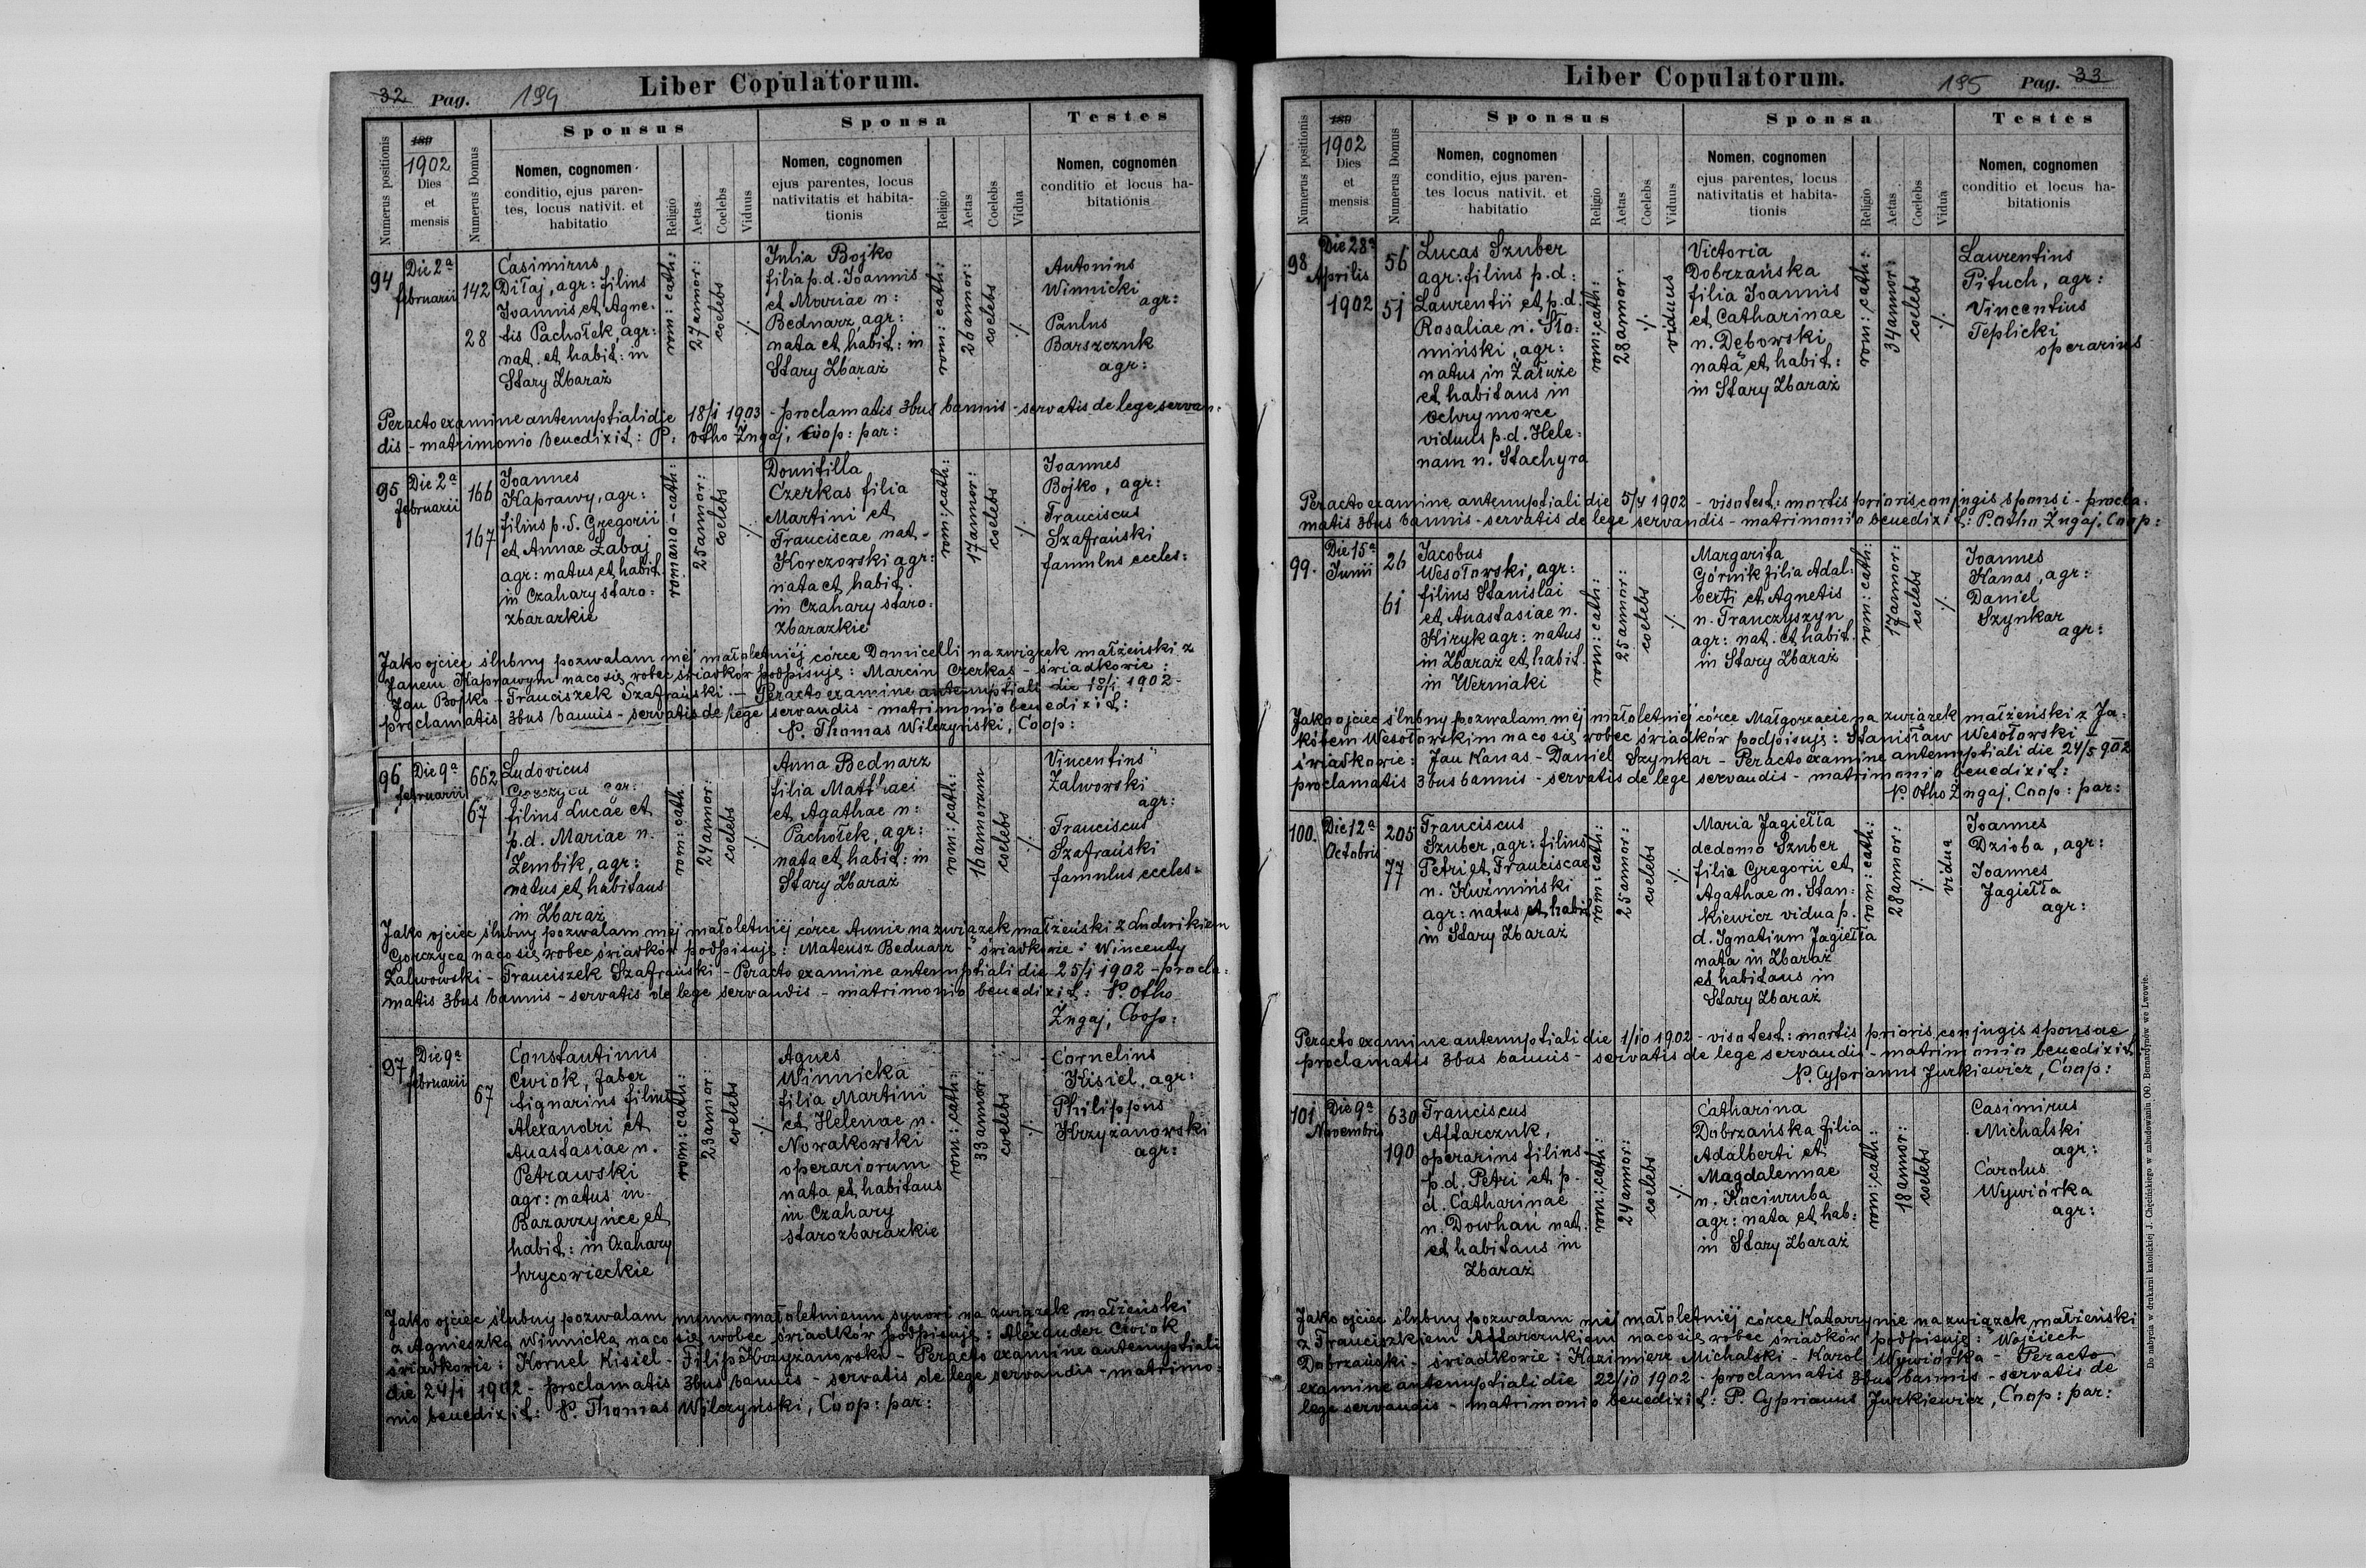 32 Pag. 194
Liber Copulatorum.
Numerus positionis
189
1902
Dies
et
mensis
Numerus Domus
Sponsus
Nomen, cognomen
conditio, ejus paren-
tes, locus nativit. et
habitatio
Religio
Aetas
Coelebs
Viduus
Sponsa
Nomen, cognomen
ejus parentes, locus
nativitatis et habita-
tionis
Religio
Aetas
Coelebs
Vidua
Testes
Nomen, cognomen
conditio et locus ha-
bitationis
94
Die 2ª
februarii
142
28
Casimirus
Diłaj, agr: filius
Joannis et Agne-
tis Pachołek, agr:
nat. et habit: in
Stary Zbaraż
rom: cath:
27 annor:
coelebs
./.
Julia Bojko
filia p.d. Joannis
et Mariae n:
Bednarz, agr:
nata et habit: in
Stary Zbaraż
rom: cath:
26 annor:
coelebs
./.
Antonius
Winnicki
agr:
Paulus
Barszczuk
agr:
Peracto examine antenuptiali die 18/I 1903 - proclamatis 3bus bannis - servatis de lege servan-
dis - matrimonio benedixit: P. Otho Żugaj, Coop: par:
95
Die 2ª
februarii
166
167
Joannes
Kaprawy, agr:
filius p.d. Gregorii
et Annae Zabaj
agr: natus et habit.
in Czahary staro:
zbarazkie
romano-cath:
25 annor:
coelebs
./.
Domitilla
Czerkas filia
Martini et
Franciscae nat-
Korczowski agr:
nata et habit:
in Czahary staro:
zbarazkie
rom: cath:
17 annor:
coelebs
./.
Joannes
Bojko, agr:
Franciscus
Szafrański
famulus eccles:
Jako ojciec ślubny pozwalam mej małoletniej córce Domicelli na związek małżeński z
Janem Kaprawym na co się wobec świadków podpisuję: Marcin Czerkas - świadkowie:
Jan Bojko - Franciszek Szafrański. - Peracto examine antenuptiali die 18/I 1902 -
proclamatis 3bus bannis - servatis de lege servandis - matrimonio benedixit:
P. Thomas Wilczyński, Coop:
96
Die 9ª
februarii
662
67
Ludovicus
filius Lucae et
p.d. Mariae n.
Zembik, agr:
natus et habitans
in Zbaraż
rom: cath
24 annor:
coelebs
./.
Anna Bednarz
filia Matthaei
et Agathae n:
Pachołek, agr:
nata et habit: in
Stary Zbaraż
rom: cath:
16 annorum
coelebs
./.
Vincentius
Zalworski
agr:
Franciscus
Szafrański
famulus eccles:
Jako ojciec ślubny pozwalam mej małoletniej córce Annie na związek małżeński z Ludwikiem
Gorczyca na co się wobec świadków podpisuję: Mateusz Bednarz - świadkowie: Wincenty
Zalwowski - Franciszek Szafrański - Peracto examine antenuptiali die 25/I 1902 - procla-
matis 3bus bannis - servatis de lege servandis - matrimonio benedixit: P. Otho
Żugaj, Coop:
97
Die 9ª
februarii
67
Constantinus
Ćwiok, faber
lignarius filius
Alexandri et
Anastasiae n.
Petrawski
agr: natus in
Bazarzyńce et
habit: in Czahary
hrycowieckie
rom: cath:
23 annor:
coelebs
./.
Agnes
Winnicka
filia Martini
et Helenae n.
Nowakowski
operariorum
nata et habitans
in Czahary
starozbarazkie
rom: cath:
33 annor:
coelebs
./.
Cornelius
Kisiel, agr:
Philippus
Krzyżanowski
agr:
Jako ojciec ślubny pozwalam memu małoletniemu synowi na związek małżeński
z Agnieszką Winnicką na co się wobec świadków podpisuję: Alexander Ćwiok
świadkowie: Kornel Kisiel - Filip Krzyżanowski - Peracto examine antenuptiali
die 24/I 1902 - proclamatis 3bus bannis - servatis de lege servandis - matrimo-
nio benedixit: P. Thomas Wilczyński, Coop: par:
Liber Copulatorum.
195 Pag. 33
Numerus positionis
189
1902
Dies
et
mensis
Numerus Domus
Sponsus
Nomen, cognomen
conditio, ejus paren-
tes locus nativit. et
habitatio
Religio
Aetas
Coelebs
Viduus
Sponsa
Nomen, cognomen
ejus parentes, locus
nativitatis et habita-
tionis
Religio
Aetas
Coelebs
Vidua
Testes
Nomen, cognomen
conditio et locus ha-
bitationis
98
Die 28ª
Aprilis
1902
56
51
Lucas Szuber
agr: filius p.d:
Laurentii et p.d.
Rosaliae n. Sło:
miński, agr:
natus in Załuże
et habitans in
Ochrymowce
viduus p.d. Hele:
nam n. Stachyra
rom: cath:
28 annor:
./.
viduus
Victoria
Dobrzańska
filia Joannis
et Catharinae
n. Dębowski
nata et habit:
in Stary Zbaraż
rom: cath:
34 annor:
coelebs
./.
Laurentius
Pituch, agr:
Vincentius
Teplicki
operarius
Peracto examine antenuptiali die 5/4 1902 - viso test: mortis prioris conjugis sponsi - procla-
matis 3bus bannis - servatis de lege servandis - matrimonio benedixit: P. Otho Żugaj. Coop:
99.
Die 15ª
Junii
26
61
Jacobus
Wesołowski, agr:
filius Stanislai
et Anastasiae n.
Kiryk agr: natus
in Zbaraż et habit.
in Werniaki
rom: cath:
25 annor:
coelebs
./.
Margarita
Górnik filia Adal:
berti et Agnetis
n. Franczyszyn
agr: nat. et habit.
in Stary Zbaraż
rom: cath:
17 annor:
coelebs
./.
Joannes
Kanas, agr:
Daniel
Szynkar
agr:
Jako ojciec ślubny pozwalam mej małoletniej córce Małgorzacie na związek małżeński z Ja-
kóbem Wesołowskim na co się wobec świadków podpisuję: Stanisław Wesołowski -
świadkowie: Jan Kanas - Daniel Szynkar - Peracto examine antenuptiali die 24/5 902
proclamatis 3bus bannis - servatis de lege servandis - matrimonio benedixit:
P. Otho Żugaj, Coop: par:
100.
Die 12ª
Octobris
205
77
Franciscus
Szuber, agr: filius
Petri et Franciscae
n. Kuźmiński
agr: natus et habit
in Stary Zbaraż
rom: cath:
25 annor:
coelebs
./.
Maria Jagiełła
de domo Szuber
filia Gregorii et
Agathae n. Stan:
kiewicz vidua p.
d. Ignatium Jagiełła
nata in Zbaraż
et habitans in
Stary Zbaraż
rom: cath:
28 annor:
./.
vidua
Joannes
Dzioba, agr:
Joannes
Jagiełła
agr:
Peracto examine antenuptiali die 1/10 1902 - viso test: mortis prioris conjugis sponsae
proclamatis 3bus bannis - servatis de lege servandis - matrimonio benedixit
P. Cyprianus Jurkiewicz, Coop:
101
Die 9ª
Novembris
630
190
Franciscus
Attarczuk,
operarius filius
p.d. Petri et p.
d. Catharinae
n. Dowhań nat.
et habitans in
Zbaraż
rom: cath:
24 annor:
coelebs
./.
Catharina
Dobrzańska filia
Adalberti et
Magdalennae
n. Kociuruba
agr: nata et hab:
in Stary Zbaraż
rom: cath:
18 annor:
coelebs
Casimirus
Michalski
agr:
Carolus
Wywiórka
agr:
Jako ojciec ślubny pozwalam mej małoletniej córce Katarzynie na związek małżeński
z Franciszkiem Attarczukiem na co się wobec świadków podpisuję: Wojciech
Dobrzański - świadkowie: Kazimierz Michalski - Karol Wywiórka - Peracto
examine antenuptiali die 22/10 1902 - proclamatis 3bus bannis - servatis de
lege servandis - matrimonio benedixit: P. Cyprianus Jurkiewicz, Coop: par:
Do nabycia w drukarni katolickiej J. Chęcińskiego w zabudowaniu OO. Bernardynów we Lwowie.